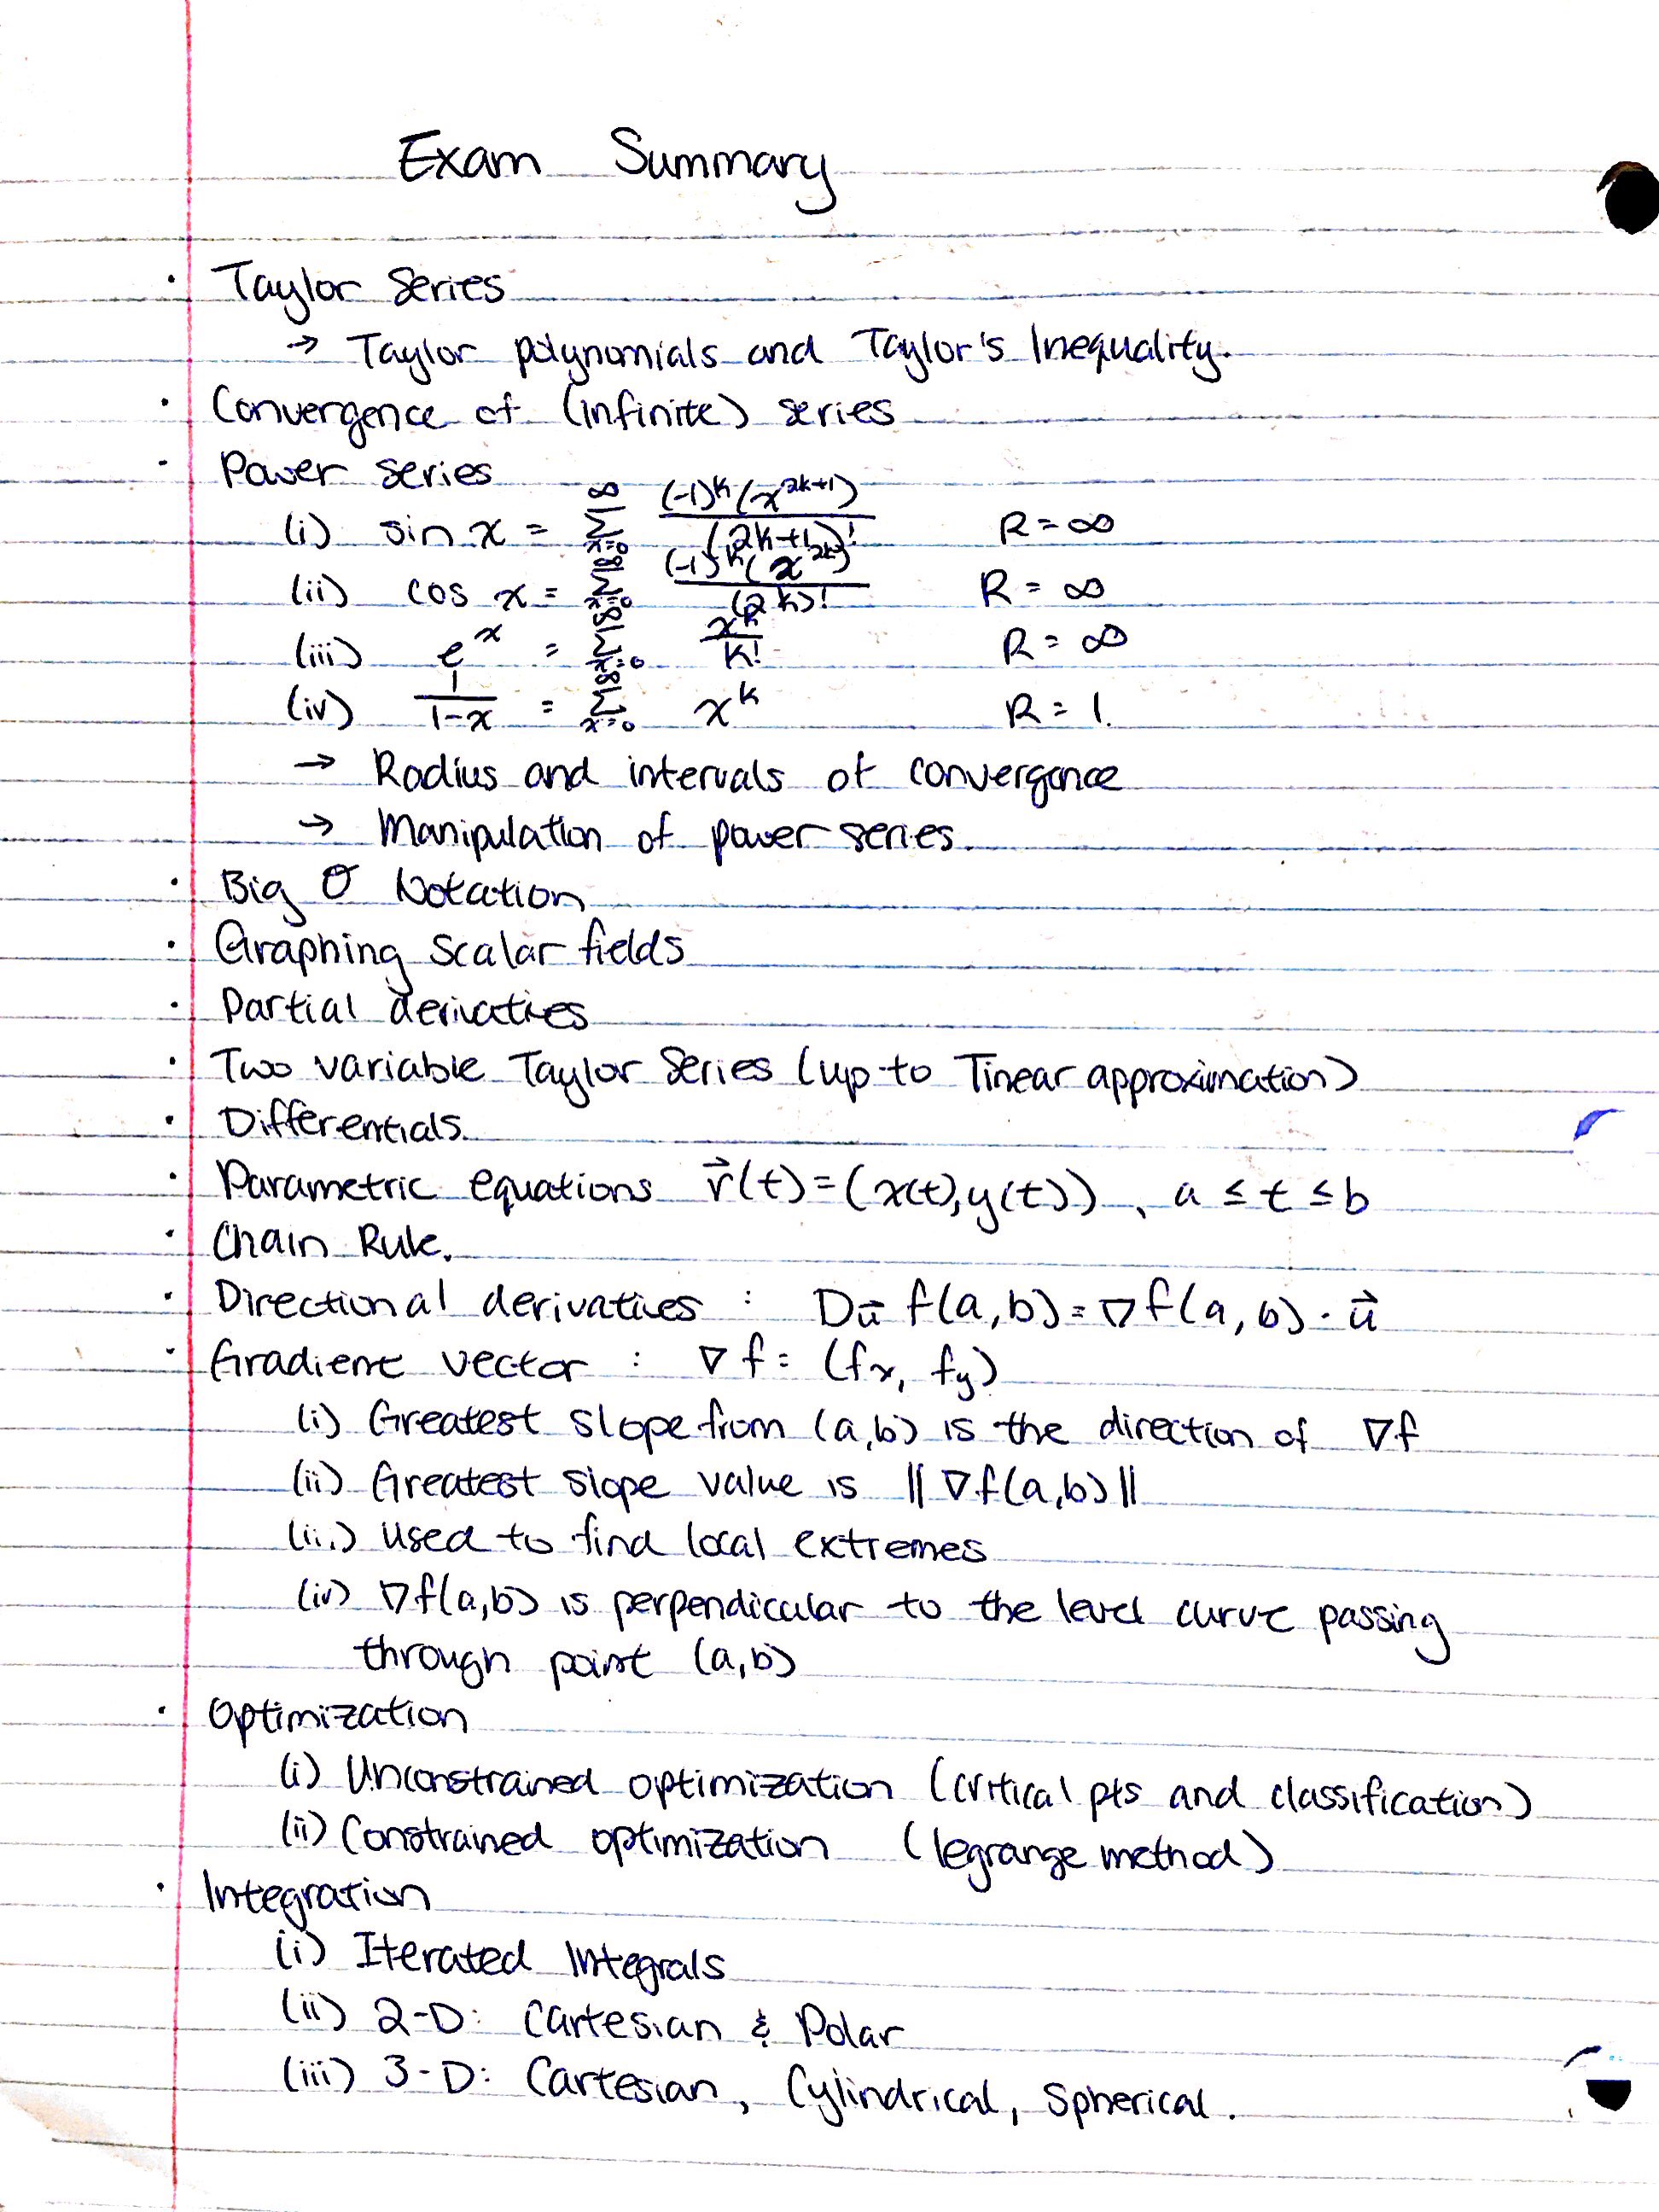 Exam Summary
· Taylor Series
→ Taylor polynomials and Taylor's Inequality.
· Convergence of (infinite) series
· Power series
(i) sin x = ∞ Σ x=0 (-1)^k (x^2k+1) / (2k+1)! R = ∞
(ii) cos x = ∞ Σ x=0 (-1)^k (x^2k) / (2k)! R = ∞
(iii) e^x = ∞ Σ x=0 x^k / k! R = ∞
(iv) 1 / 1-x = ∞ Σ x=0 x^k R = 1.
→ Radius and intervals of convergence
→ Manipulation of power series.
· Big O Notation
· Graphing scalar fields
· Partial derivatives
· Two variable Taylor Series (up to linear approximation)
· Differentials.
· Parametric equations r⃗(t) = (x(t), y(t)), a ≤ t ≤ b
· Chain Rule.
· Directional derivatives : Du⃗ f(a,b) = ∇f(a,b) · u⃗
· Gradient vector : ∇f = (fx, fy)
(i) Greatest slope from (a,b) is the direction of ∇f
(ii) Greatest slope value is ||∇f(a,b)||
(iii) Used to find local extremes
(iv) ∇f(a,b) is perpendicular to the level curve passing
through point (a,b)
· Optimization
(i) Unconstrained optimization (critical pts and classification)
(ii) Constrained optimization (legrange method)
· Integration
(i) Iterated Integrals
(ii) 2-D: Cartesian & Polar
(iii) 3-D: Cartesian, Cylindrical, Spherical.